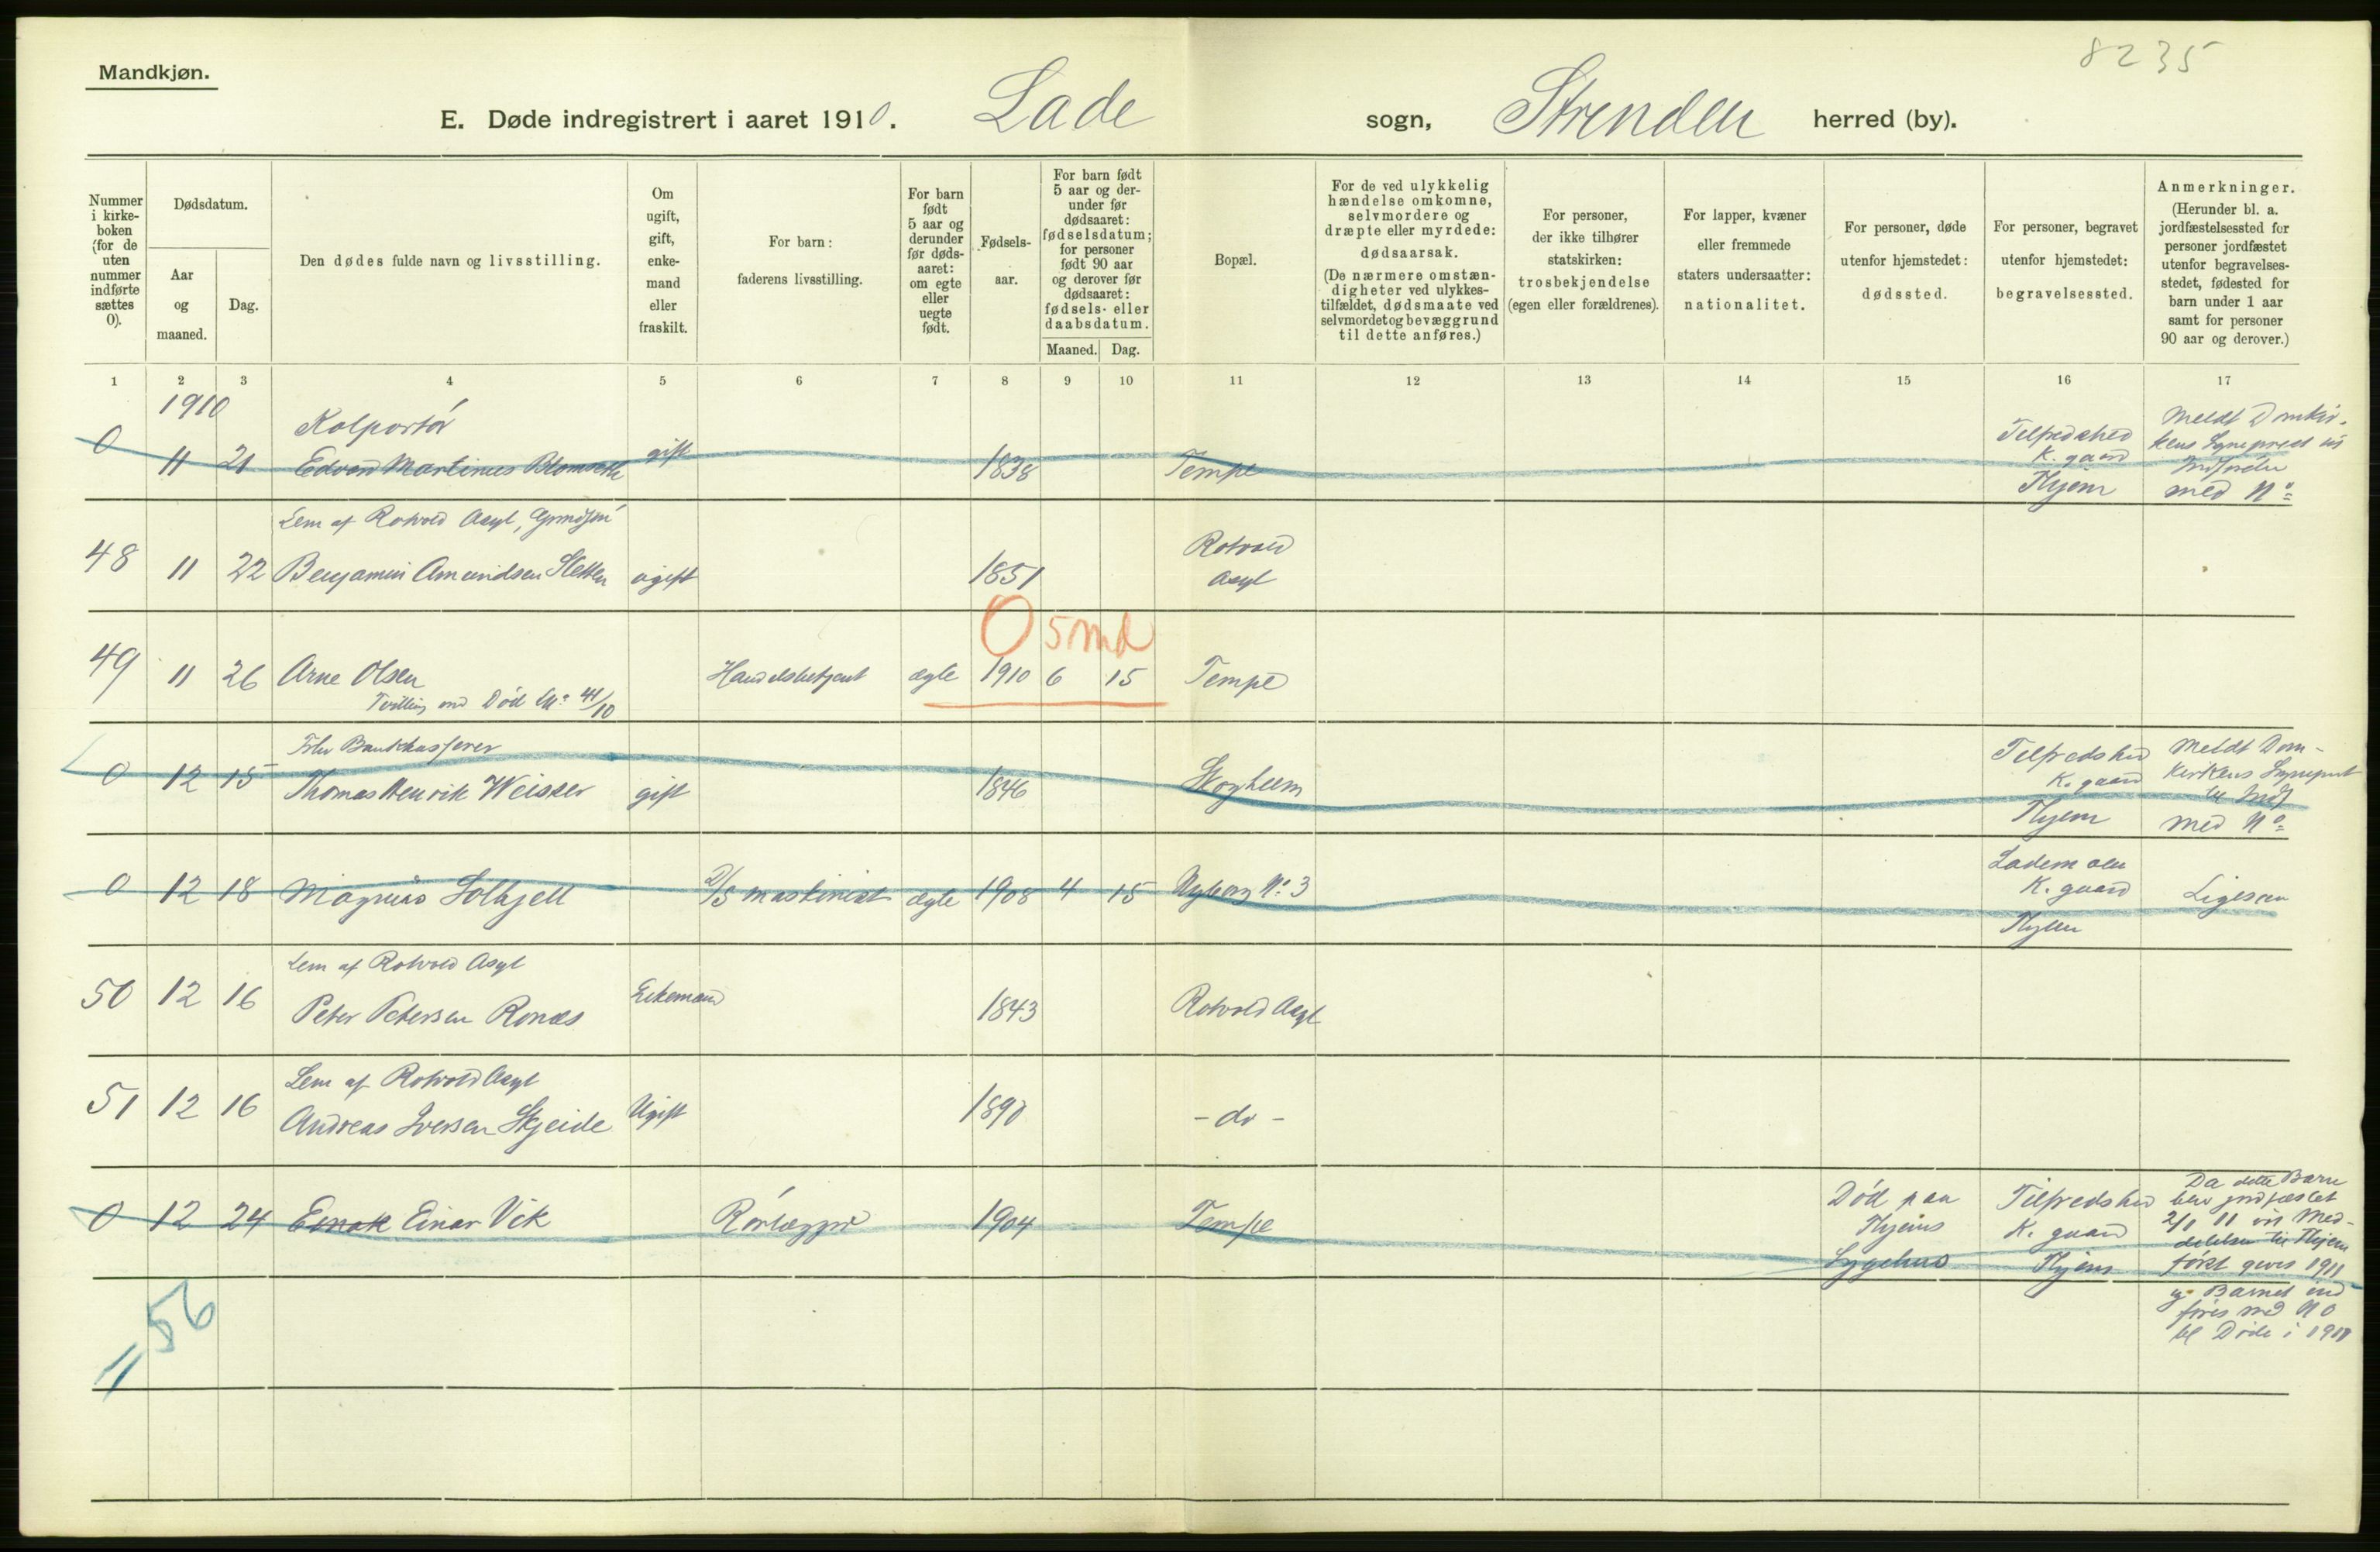 8235
Mandkjøn.
E. Døde indregistrert i aaret 1910. Lade sogn, Strinden herred (by).
Nummer i kirkeboken (for de uten nummer indførte sættes 0).
Dødsdatum.
Aar og maaned.
Dag.
Den dødes fulde navn og livsstilling.
Om ugift, gift, enkemand eller fraskilt.
For barn: faderens livsstilling.
For barn født 5 aar og derunder før dødsaaret: om egte eller uegte født.
Fødselsaar.
For barn født 5 aar og derunder før dødsaaret: fødselsdatum; for personer født 90 aar og derover før dødsaaret: fødsels- eller daabsdatum.
Maaned. Dag.
Bopæl.
For de ved ulykkelig hændelse omkomne, selvmordere og dræpte eller myrdede: dødsaarsak. (De nærmere omstændigheter ved ulykkestilfældet, dødsmaate ved selvmordet og bevæggrund til dette anføres.)
For personer, der ikke tilhører statskirken: trosbekjendelse (egen eller forældrenes).
For lapper, kvæner eller fremmede staters undersaatter: nationalitet.
For personer, døde utenfor hjemstedet: dødssted.
For personer, begravet utenfor hjemstedet: begravelsessted.
Anmerkninger. (Herunder bl. a. jordfæstelsessted for personer jordfæstet utenfor begravelsesstedet, fødested for barn under 1 aar samt for personer 90 aar og derover.)
1 2 3 4 5 6 7 8 9 10 11 12 13 14 15 16 17
1910
Kolportør
0 11 21 Edvard Martinus gift 1838 Tempe Tilfredshed K. gaard Thjem Meldt Domkirkens med No
Lem af Rotvold Asyl,
48 11 22 Benjamin Amundsen Sletten ugift 1851 Rotvold Asyl
0 5 md
49 11 26 Arne Olsen Handelsbetjent ægte 1910 6 15 Tempe
Tvilling med Død No 41/10
Bankkasserer
0 12 15 Thomas Henrik Weisser gift 1846 Tilfredshed K. gaard Thjem Meldt Domkirkens med No
0 12 18 Magnus Solhjell D/S maskinist ægte 1908 4 15 Nyborg No 3 Lademoen K. gaard Thjem Ligesaa
Lem af Rotvold Asyl
50 12 16 Peter Petersen Ronæs Enkemand 1843 Rotvold Asyl
Lem af Rotvold Asyl
51 12 16 Andreas Iversen Skjeide Ugift 1890 - do -
0 12 24 Einar Vik Rørlægger 1904 Tempe Død paa Thjems Sygehus Tilfredshed K. gaard Thjem Da dette Barn blev jordfæstet 2/1 11 vil Meddelelse til Thjem først gives 1911
og Barnet indføres med No bl Døde i 1911
56
11